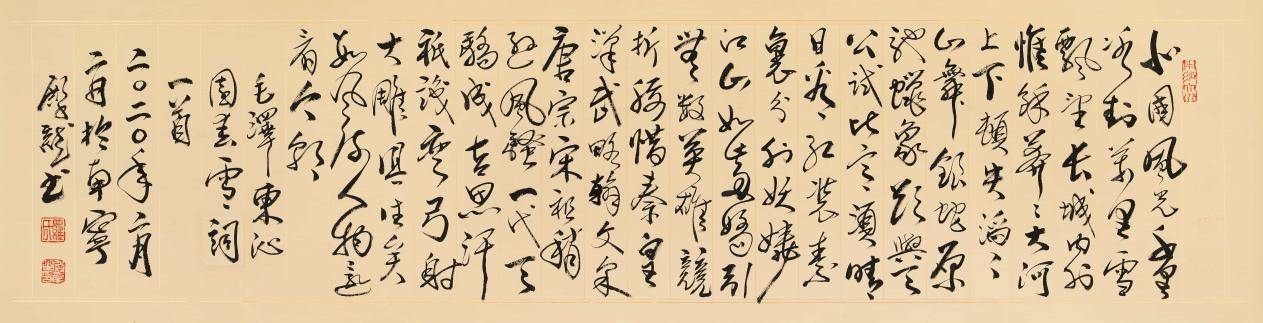 北國風光千里
冰封萬里雪
飄望長城内外
惟餘莽〻大河
上下頓失滔〻
山舞銀蛇原
馳蠟象欲與天
公試比高須晴
日看紅裝素
裹分外妖嬈
江山如此多嬌引
無數英雄競
折腰惜秦皇
漢武略輸文采
唐宗宋祖稍
遜風騷一代天
驕成吉思汗
祇識彎弓射
大雕俱往矣
數風流人物還
看今朝
毛澤東沁
園春雪詞
一首
二〇二〇年二月
二月於南寧
龍書